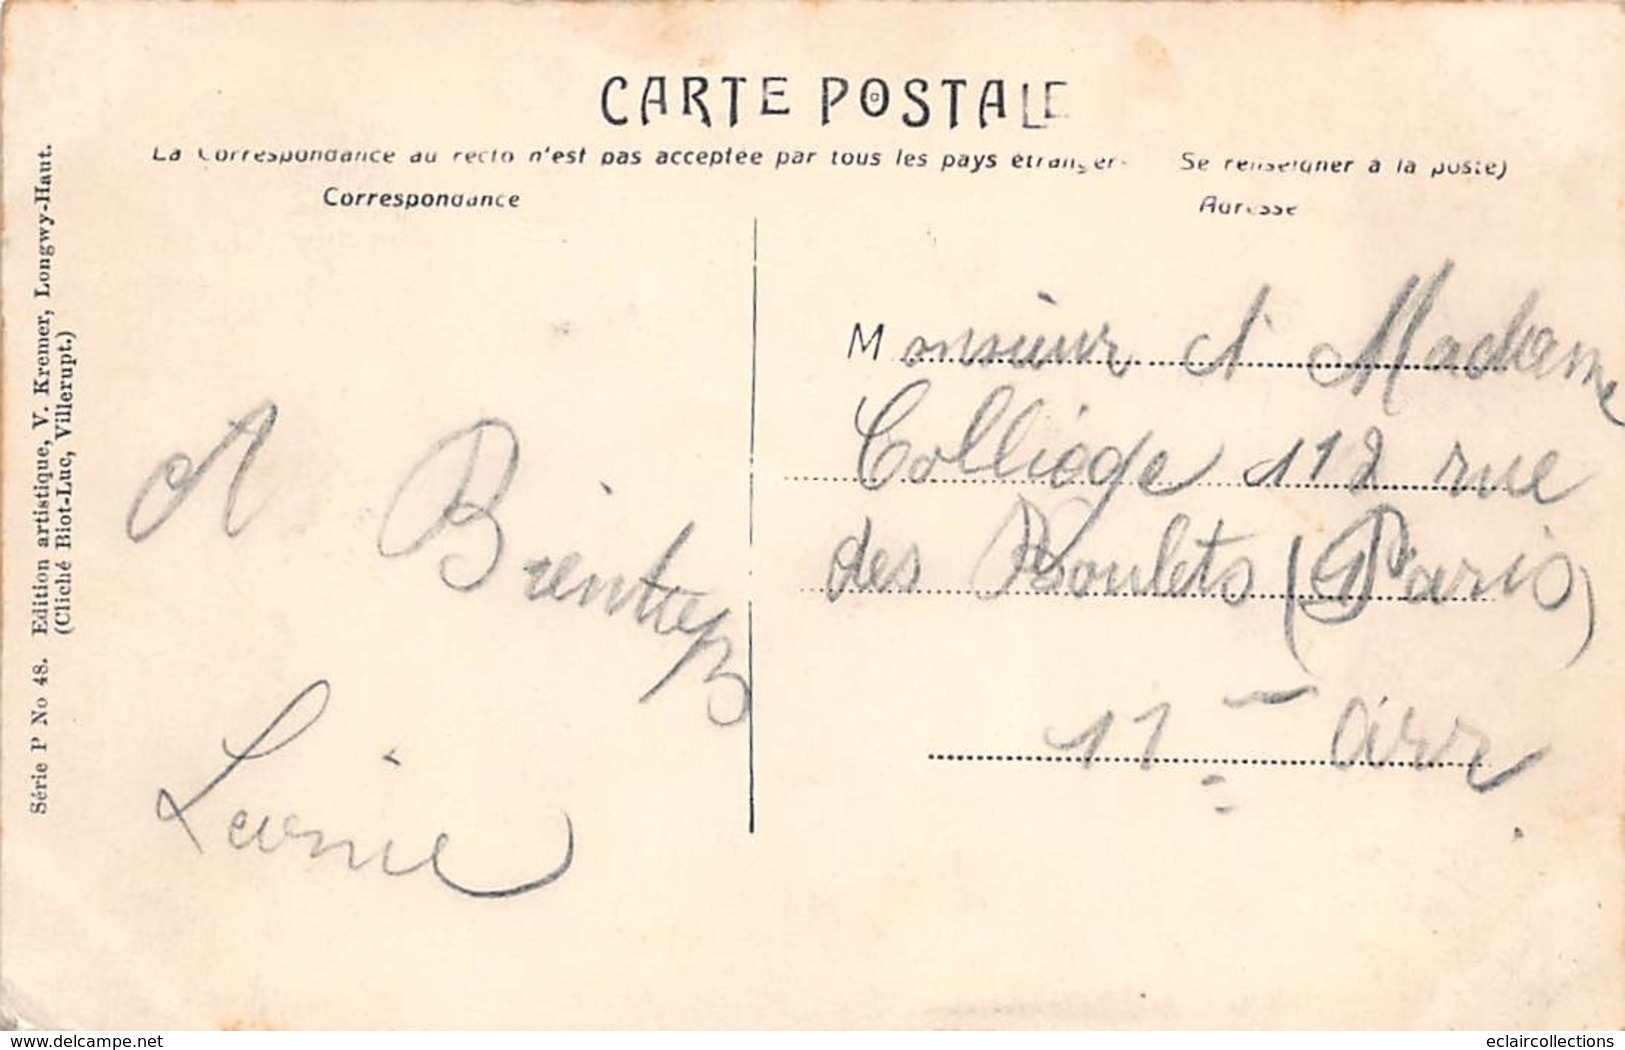 CARTE POSTALE
La Correspondance au recto n'est pas acceptée par tous les pays étrangers Se renseigner à la poste)
Correspondance
Adresse
Série P No 48. Edition artistique, V. Kremer, Longwy-Haut.
(Cliché Biot-Luc, Villerupt.)
A Bientôt
Monsieur et Madame
Colliège 112 rue
des Boulets (Paris)
11e arr.
delcampe.net
eclaircollections